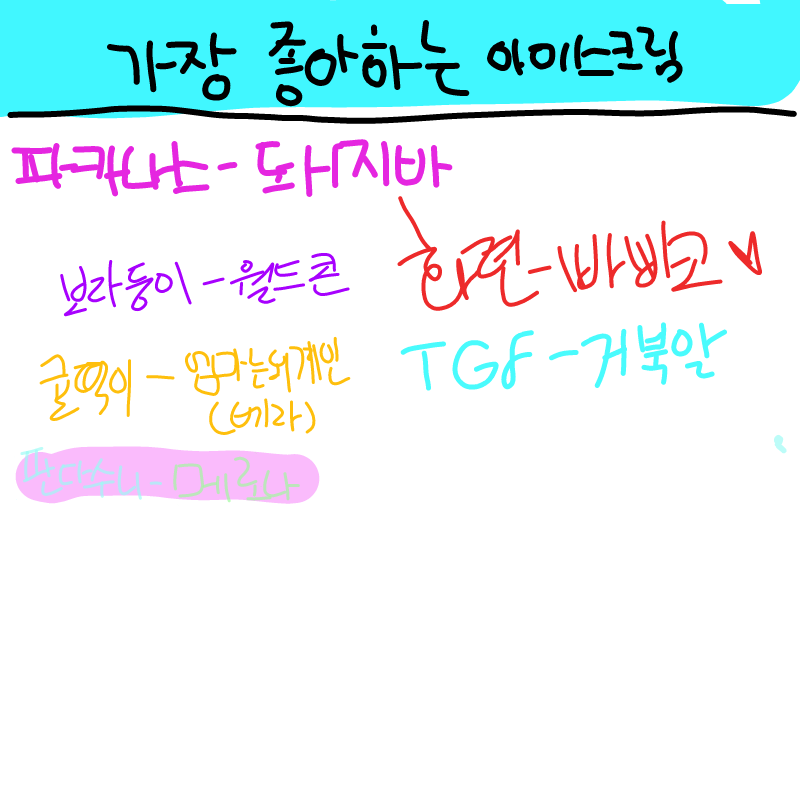 가장 좋아하는 아이스크림
파카나스 - 돼지바
보라둥이 - 월드콘
화련 - 빠삐코
귤떡이 - 엄마는외계인
(베라)
TGF - 거북알
판다수니 - 메로나